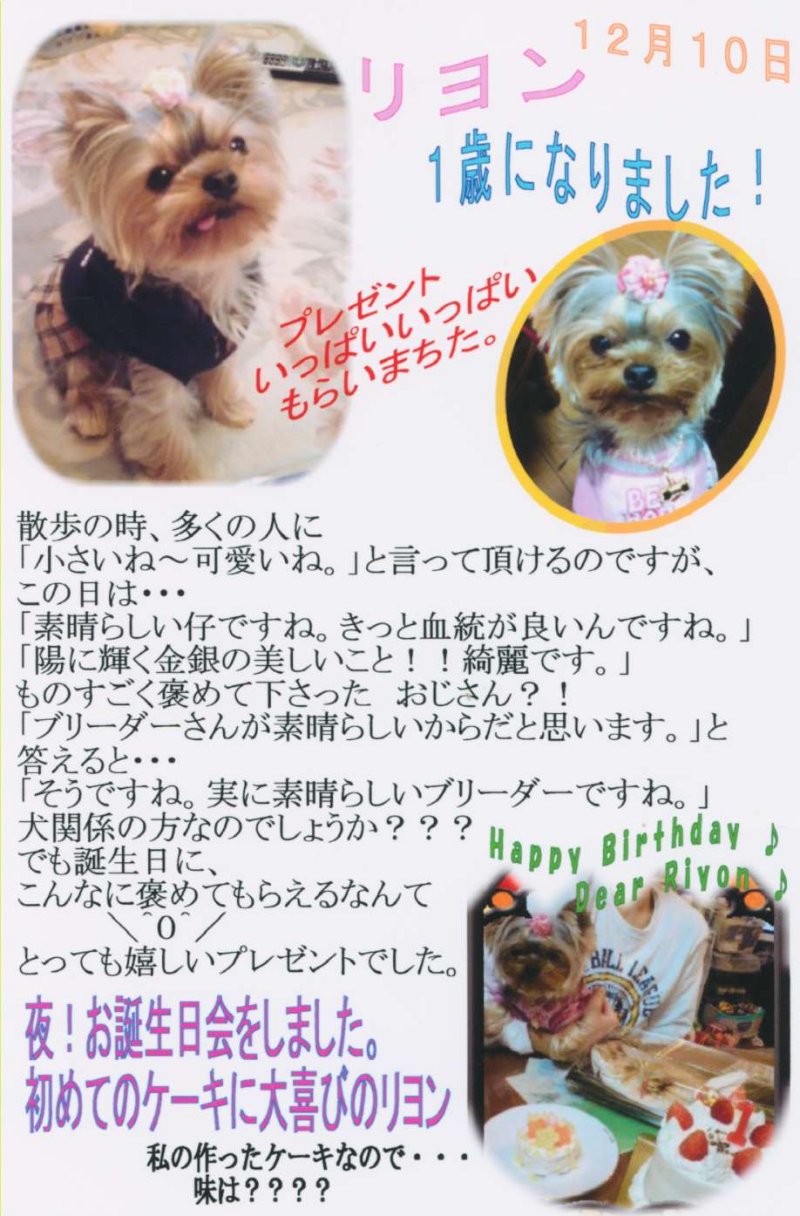 12月10日
リヨン
1歳になりました！
プレゼント
いっぱいいっぱい
もらいまちた。
散歩の時、多くの人に
「小さいね～可愛いね。」と言って頂けるのですが、
この日は・・・
「素晴らしい仔ですね。きっと血統が良いんですね。」
「陽に輝く金銀の美しいこと！！綺麗です。」
ものすごく褒めて下さった　おじさん？！
「ブリーダーさんが素晴らしいからだと思います。」と
答えると・・・
「そうですね。実に素晴らしいブリーダーですね。」
犬関係の方なのでしょうか？？？
でも誕生日に、
こんなに褒めてもらえるなんて
＼^O^／
とっても嬉しいプレゼントでした。
Happy Birthday ♪
Dear Riyon ♪
夜！お誕生日会をしました。
初めてのケーキに大喜びのリヨン
私の作ったケーキなので・・・
味は？？？？
BE
BILL LEAGUE
1